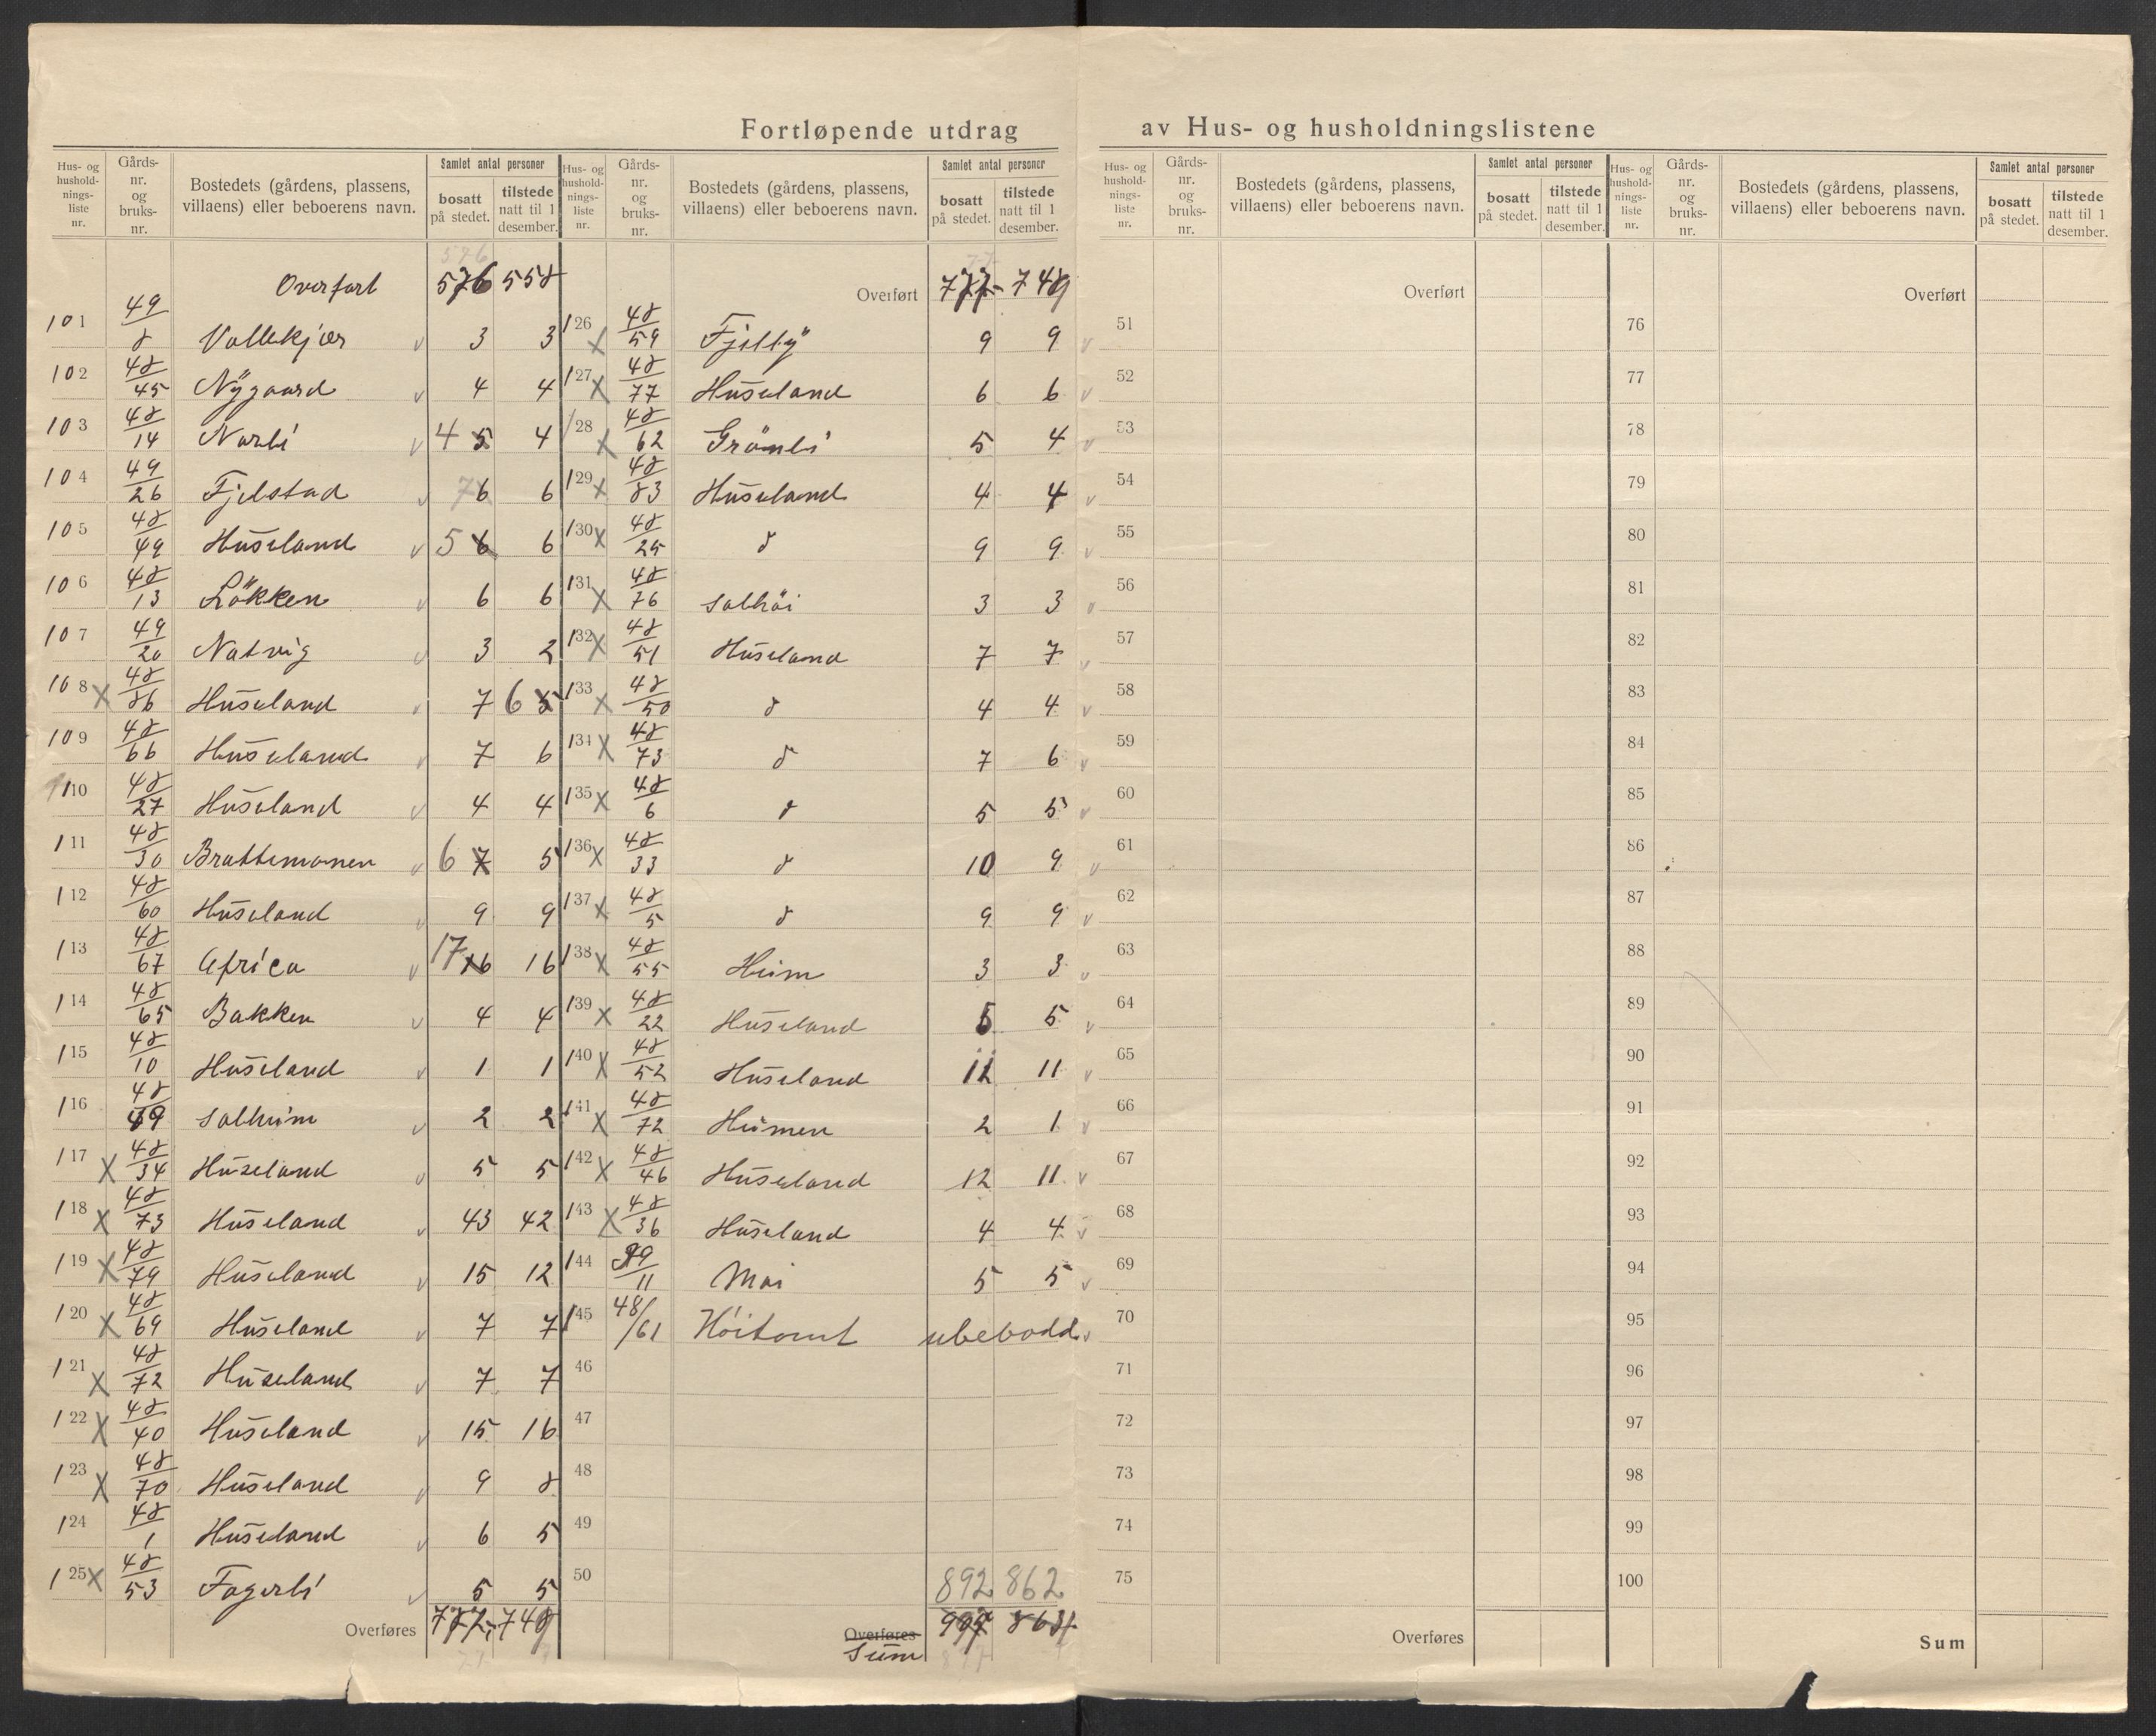 Fortløpende utdrag av Hus- og husholdningslistene
Hus- og husholdnings-liste nr. | Gårds-nr. og bruks-nr. | Bostedets (gårdens, plassens, villaens) eller beboerens navn. | Samlet antal personer | bosatt på stedet. | tilstede natt til 1 desember.
Overført 576 558
101 49/8 Vollekjær 3 3
102 48/45 Nÿgaard 4 4
103 48/14 Norli 4 5 4
104 49/26 Fjelstad 7 6 6
105 48/49 Huseland 5 6 6
106 48/13 Løkken 6 6
107 49/20 Natvig 3 2
108 X 48/86 Huseland 7 6 5
109 48/66 Huseland 7 6
110 48/27 Huseland 4 4
111 48/30 Brattemonen 6 7 5
112 48/60 Huseland 9 9
113 48/67 Africa 17 16 16
114 48/65 Bakken 4 4
115 48/10 Huseland 1 1
116 48/49 Solheim 2 2
117 X 48/34 Huseland 5 5
118 X 48/73 Huseland 43 42
119 X 48/79 Huseland 15 12
120 X 48/69 Huseland 7 7
121 X 48/72 Huseland 7 7
122 X 48/40 Huseland 15 16
123 X 48/70 Huseland 9 8
124 48/1 Huseland 6 5
125 X 48/53 Fagerli 5 5
Overføres 777 749
Hus- og husholdnings-liste nr. | Gårds-nr. og bruks-nr. | Bostedets (gårdens, plassens, villaens) eller beboerens navn. | Samlet antal personer | bosatt på stedet. | tilstede natt til 1 desember.
Overført 777 749
126 X 48/59 Fjelbÿ 9 9
127 X 48/77 Huseland 6 6
128 X 48/62 Grönli 5 4
129 X 48/83 Huseland 4 4
130 X 48/25 d 9 9
131 X 48/76 Solhöi 3 3
132 X 48/51 Huseland 7 7
133 X 48/50 d 4 4
134 X 48/73 d 7 6
135 X 48/6 d 5 5
136 X 48/33 d 10 9
137 X 48/5 d 9 9
138 X 48/55 Heim 3 3
139 X 48/22 Huseland 5 5
140 X 48/52 Huseland 11 11
141 X 48/72 Heimen 2 1
142 X 48/46 Huseland 12 11
143 X 48/36 Huseland 4 4
144 49/11 Moi 5 5
145 48/61 Høitomt ubebodd
46
47
48
49
50
892 862
Overføres
Sum
Hus- og husholdnings-liste nr. | Gårds-nr. og bruks-nr. | Bostedets (gårdens, plassens, villaens) eller beboerens navn. | Samlet antal personer | bosatt på stedet. | tilstede natt til 1 desember.
Overført
51
52
53
54
55
56
57
58
59
60
61
62
63
64
65
66
67
68
69
70
71
72
73
74
75
Overføres
Hus- og husholdnings-liste nr. | Gårds-nr. og bruks-nr. | Bostedets (gårdens, plassens, villaens) eller beboerens navn. | Samlet antal personer | bosatt på stedet. | tilstede natt til 1 desember.
Overført
76
77
78
79
80
81
82
83
84
85
86
87
88
89
90
91
92
93
94
95
96
97
98
99
100
Sum